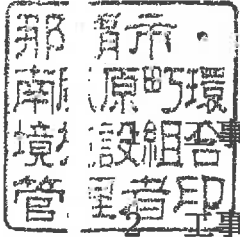 那覇市・
南風原町環
境施設組合
管理者印
事
2 工事